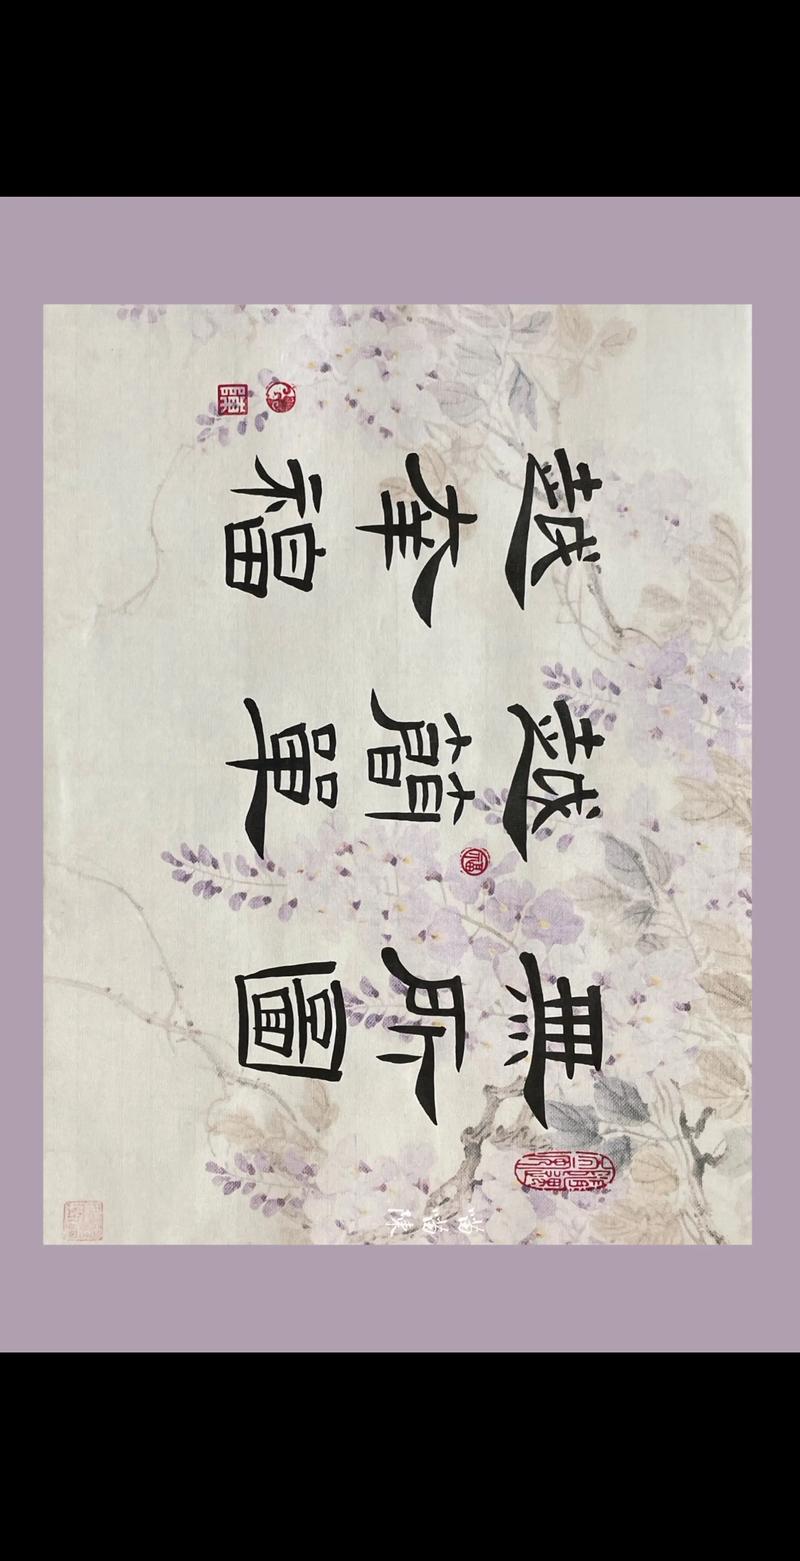 無所圖
越簡單
越幸福
福